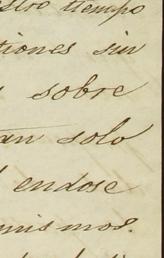 stro tiempo
tiones sin
sobre
an solo
endose
mismos.